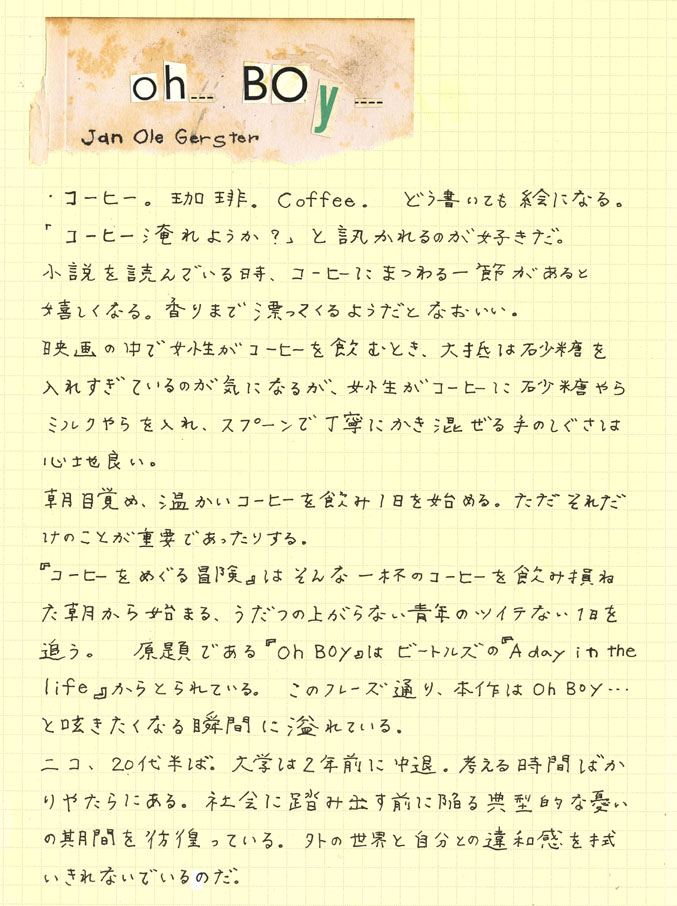 oh... BOy ....
Jan Ole Gerster
・コーヒー。珈琲。Coffee. どう書いても絵になる。
「コーヒー淹れようか？」と訊かれるのが好きだ。
小説を読んでいる時、コーヒーにまつわる一節があると
嬉しくなる。香りまで漂ってくるようだとなおいい。
映画の中で女性がコーヒーを飲むとき、大抵は砂糖を
入れすぎているのが気になるが、女性がコーヒーに砂糖やら
ミルクやらを入れ、スプーンで丁寧にかき混ぜる手のしぐさは
心地良い。
朝目覚め、温かいコーヒーを飲み1日を始める。ただそれだ
けのことが重要であったりする。
『コーヒーをめぐる冒険』はそんな一杯のコーヒーを飲み損ね
た朝から始まる、うだつの上がらない青年のツイテない1日を
追う。 原題である『Oh BOY』はビートルズの『A day in the
life』からとられている。 このフレーズ通り、本作はOh BOY…
と呟きたくなる瞬間に溢れている。
ニコ、20代半ば。大学は2年前に中退。考える時間ばか
りやたらにある。社会に踏み出す前に陥る典型的な憂い
の期間を彷徨っている。外の世界と自分との違和感を拭
いきれないでいるのだ。